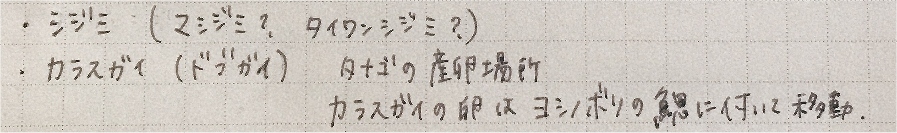 ・シジミ (マシジミ? タイワンシジミ?)
・カラスガイ (ドブガイ) タナゴの産卵場所
カラスガイの卵は ヨシノボリの鰓に付いて移動.